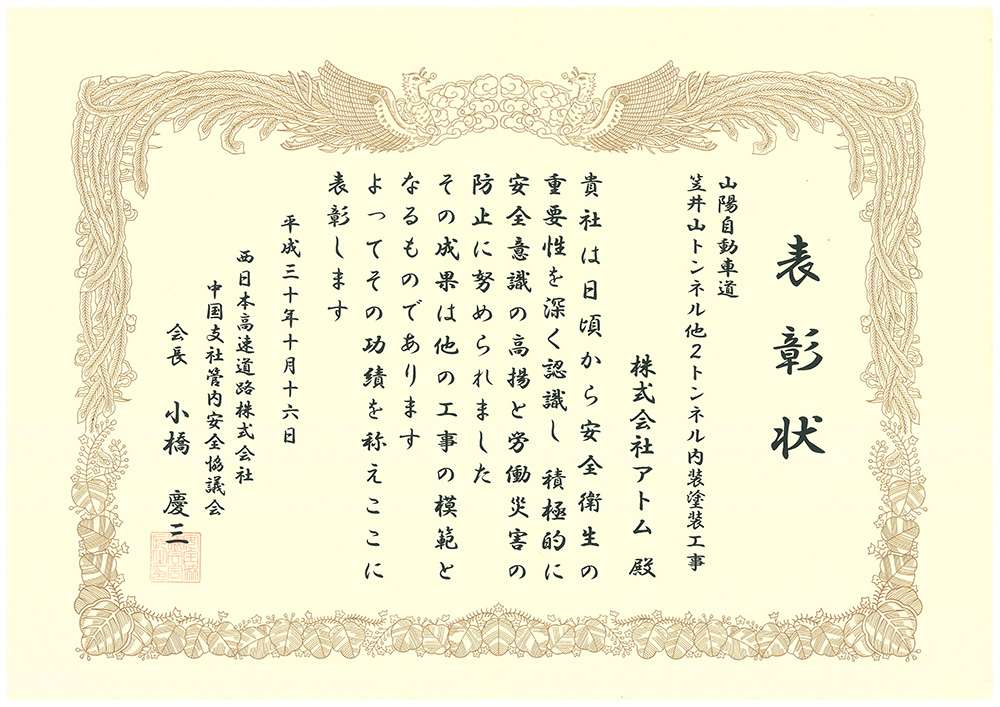 表彰状
山陽自動車道
笠井山トンネル他2トンネル内装塗装工事
株式会社アトム 殿
貴社は日頃から安全衛生の
重要性を深く認識し 積極的に
安全意識の高揚と労働災害の
防止に努められました
その成果は他の工事の模範と
なるものであります
よってその功績を称えここに
表彰します
平成三十年十月十六日
西日本高速道路株式会社
中国支社管内安全協議会
会長 小橋 慶三